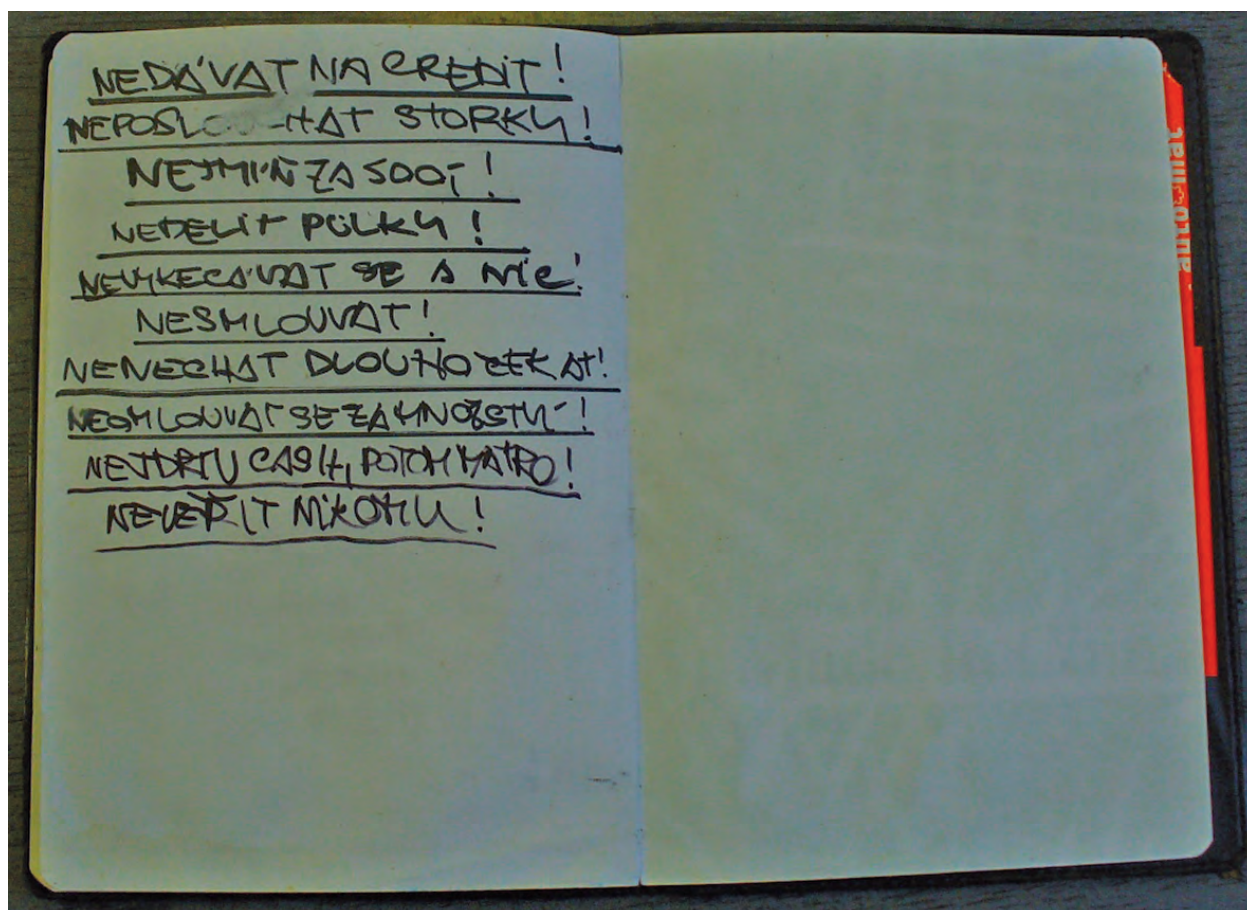 NEDÁVAT NA CREDIT!
NEPOSLOUCHAT STORKY!
NEJMÍŇ ZA 500,-!
NEDELIT PULKY!
NEVYKECÁVAT SE A NIC!
NESMLOUVAT!
NENECHAT DLOUHO ČEKAT!
NEOMLOUVAT SE ZA MNOŽSTVÍ!
NEJDRIV CASH, POTOM MATRO!
NEVEŘIT NIKOMU!